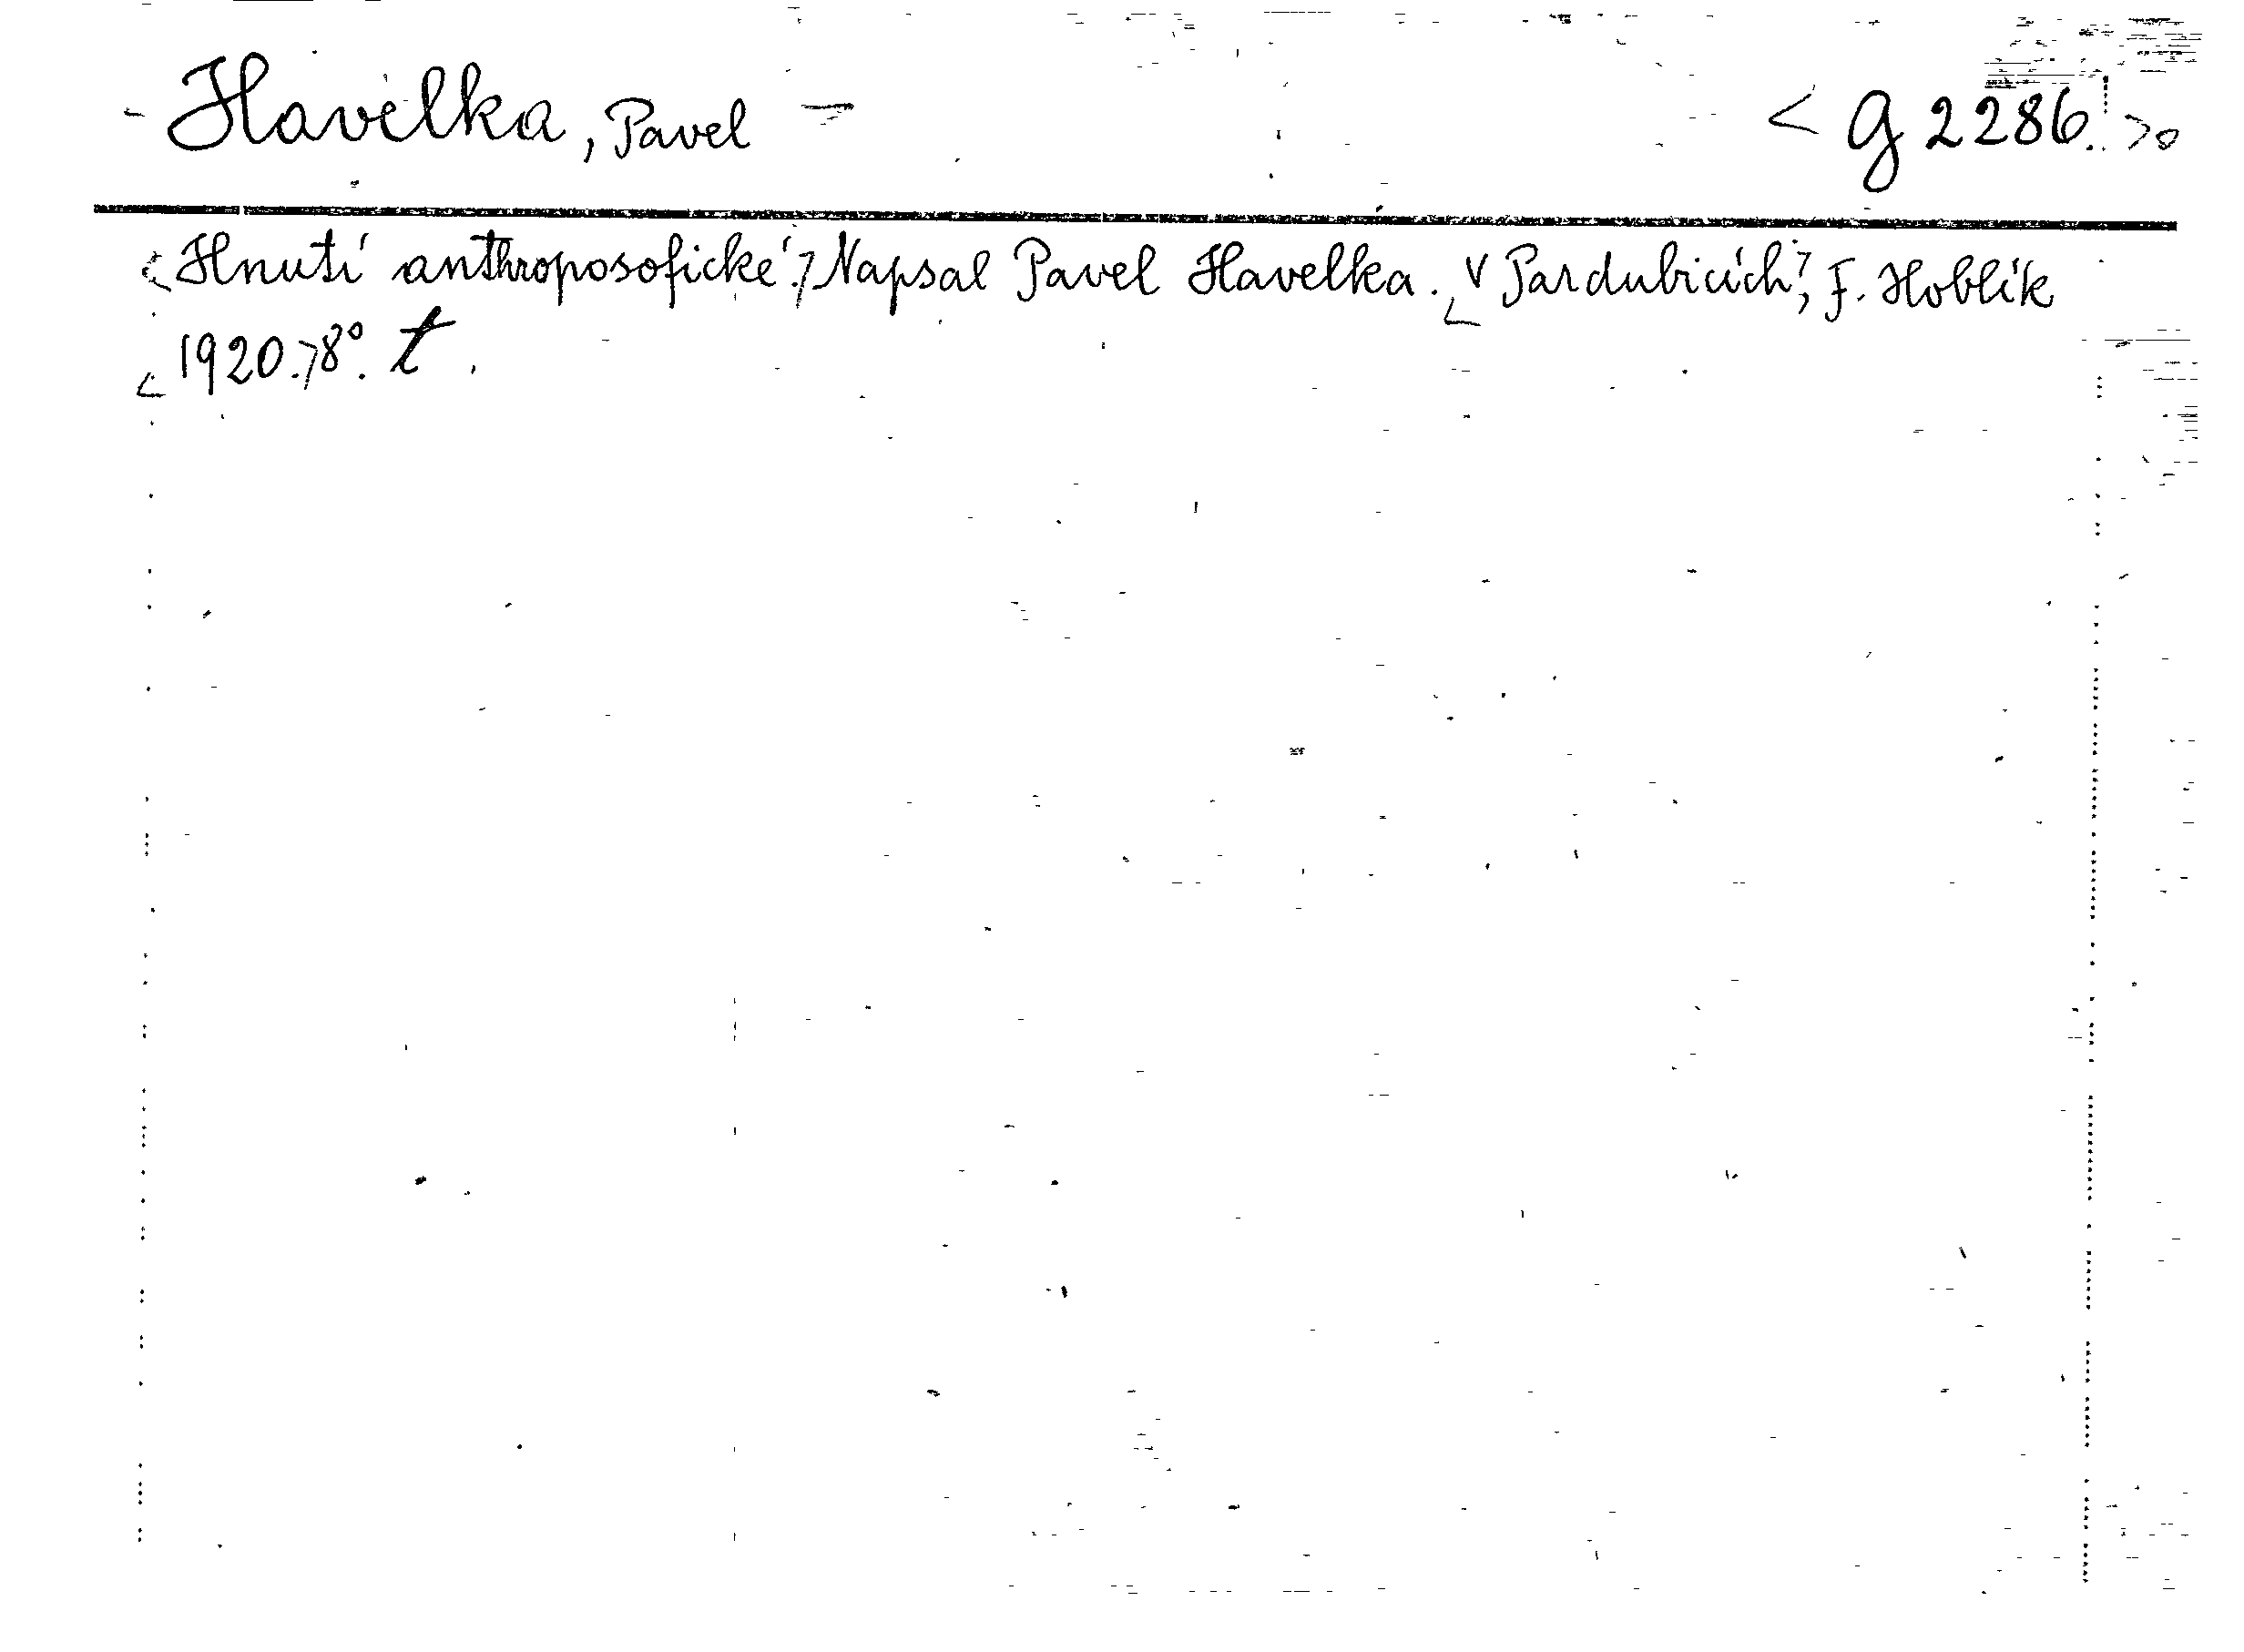 Havelka, Pavel
< g 2286. >
< Hnutí anthroposofické. > Napsal Pavel Havelka. < V Pardubicích >, F. Hoblík
< 1920. > 8°. t.